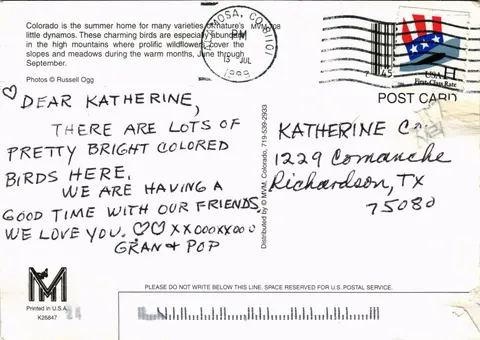 Colorado is the summer home for many varieties of nature's
little dynamos. These charming birds are especially abundant
in the high mountains where prolific wildflowers cover the
slopes and meadows during the warm months, June through
September.
Photos © Russell Ogg
♡ DEAR KATHERINE,
THERE ARE LOTS OF
PRETTY BRIGHT COLORED
BIRDS HERE.
WE ARE HAVING A
GOOD TIME WITH OUR FRIENDS.
WE LOVE YOU. ♡♡ XXOOOXXOOO
GRAN + POP
MVM
Printed in U.S.A.
K26847
Distributed by © MVM, Colorado, 719-539-2933
ALAMOSA, CO 81101
PM
13 JUL
1999
USA H
First-Class Rate
POST CARD
KATHERINE
1229 Comanche
Richardson, TX
75080
PLEASE DO NOT WRITE BELOW THIS LINE. SPACE RESERVED FOR U.S. POSTAL SERVICE.